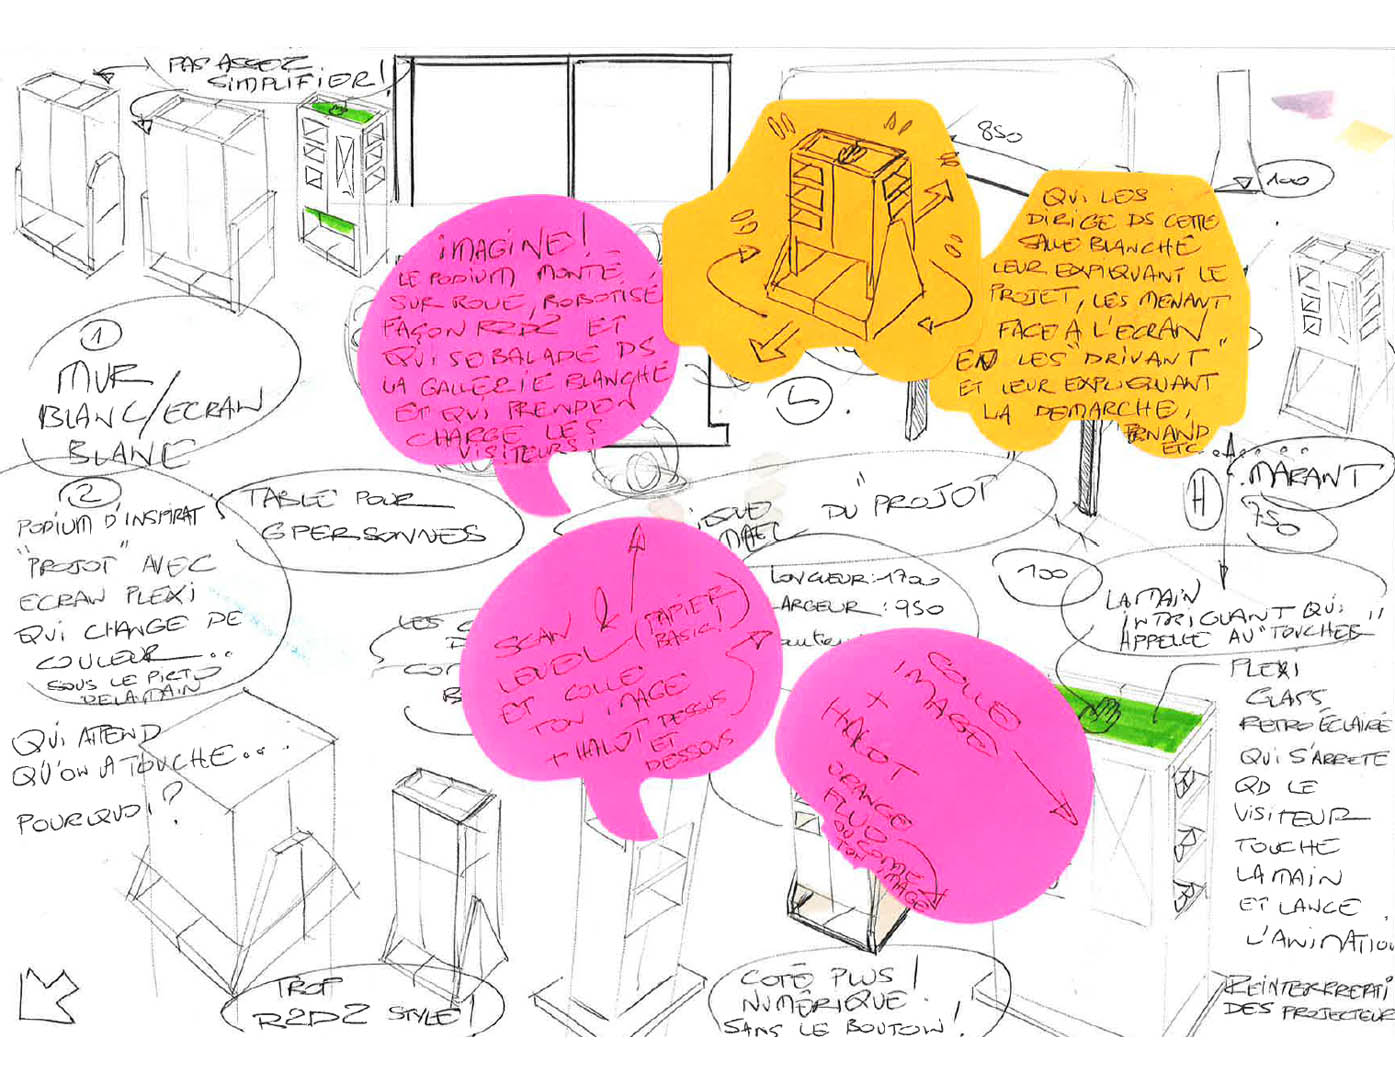 PAS ASSEZ
SIMPLIFIER!
850
100
IMAGINE!
LE PODIUM MONTÉ
SUR ROUE, ROBOTISÉ
FAÇON R2D2 ET
QUI SE BALADE DS
LA GALLERIE BLANCHE
ET QUI PREND EN
CHARGE LES
VISITEURS!
QUI LES
DIRIGE DS CETTE
SALLE BLANCHE
LEUR EXPLIQUANT LE
PROJET, LES MENANT
FACE A L'ECRAN
EN LES "DRIVANT"
ET LEUR EXPLIQUANT
LA DEMARCHE,
ETC.
1
MUR
BLANC/ECRAN
BLANC
L
2
PODIUM D'INSPIRAT
"PROJOT" AVEC
ECRAN PLEXI
QUI CHANGE DE
COULEUR...
SOUS LE PICTO
DE LA MAIN
QUI ATTEND
QU'ON A TOUCHE...
POURQUOI?
TABLE POUR
6 PERSONNES
DU "PROJOT"
MARANT
H
750
100
LONGUEUR: 1700
ARGEUR: 950
auteu
LES C
D
CO
B
SCAN &
LEVEL (PAPIER
BASIC!)
ET COLLE
TON IMAGE
+ HALOT DESSUS
ET
DESSOUS
COLLE
IMAGE
+
HALOT
ORANGE
FLUO
OU COMME
TON IMAGE
LA MAIN
INTRIGUANT QUI
APPELLE AU "TOUCHER"
PLEXI
GLASS
RETRO ÉCLAIRÉ
QUI S'ARRETE
QD LE
VISITEUR
TOUCHE
LA MAIN
ET LANCE
L'ANIMATION
DES PROJECTEUR
TROP
R2D2 STYLE!
COTÉ PLUS!
NUMÉRIQUE
SANS LE BOUTON!